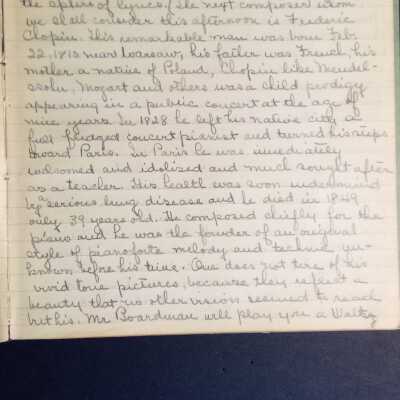 the sphere of lyrics. The next composer whom
we shall consider this afternoon is Frederic
Chopin. This remarkable man was born Feb.
22, 1810 near Warsaw, his father was French, his
mother a native of Poland, Chopin like Mendel-
ssohn, Mozart and others was a child prodigy
appearing in a public concert at the age of
nine years. In 1828 he left his native city a
full fledged concert pianist and turned his steps
toward Paris. In Paris he was immediately
welcomed and idolized and much sought after
as a teacher. His health was soon undermined
by a serious lung disease and he died in 1849
only 39 years old. He composed chiefly for the
piano and he was the founder of an original
style of pianoforte melody and technic un-
known before his time. One does not tire of his
vivid tone pictures, because they reflect a
beauty that no other vision seemed to reach
but his. Mr Boardman will play you a Waltz